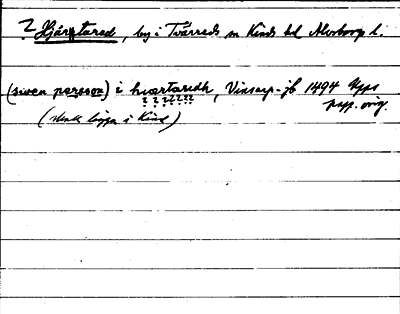 ? Hjärtared, by i Tvärreds sn Kinds hd Älvsborgs l.
(swen person) i hiærtaridh, Vinsarp-jb 1494 Upps
papp. orig.
(skall ligga i Kind)